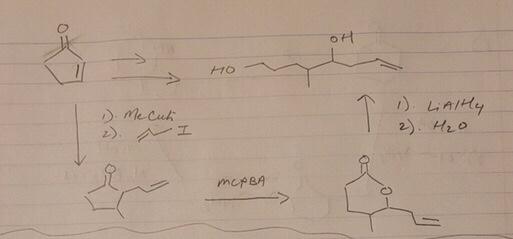 O
OH
HO
1). Me CuLi
2). I
1). LiAlH4
2). H2O
O
MCPBA
O
O